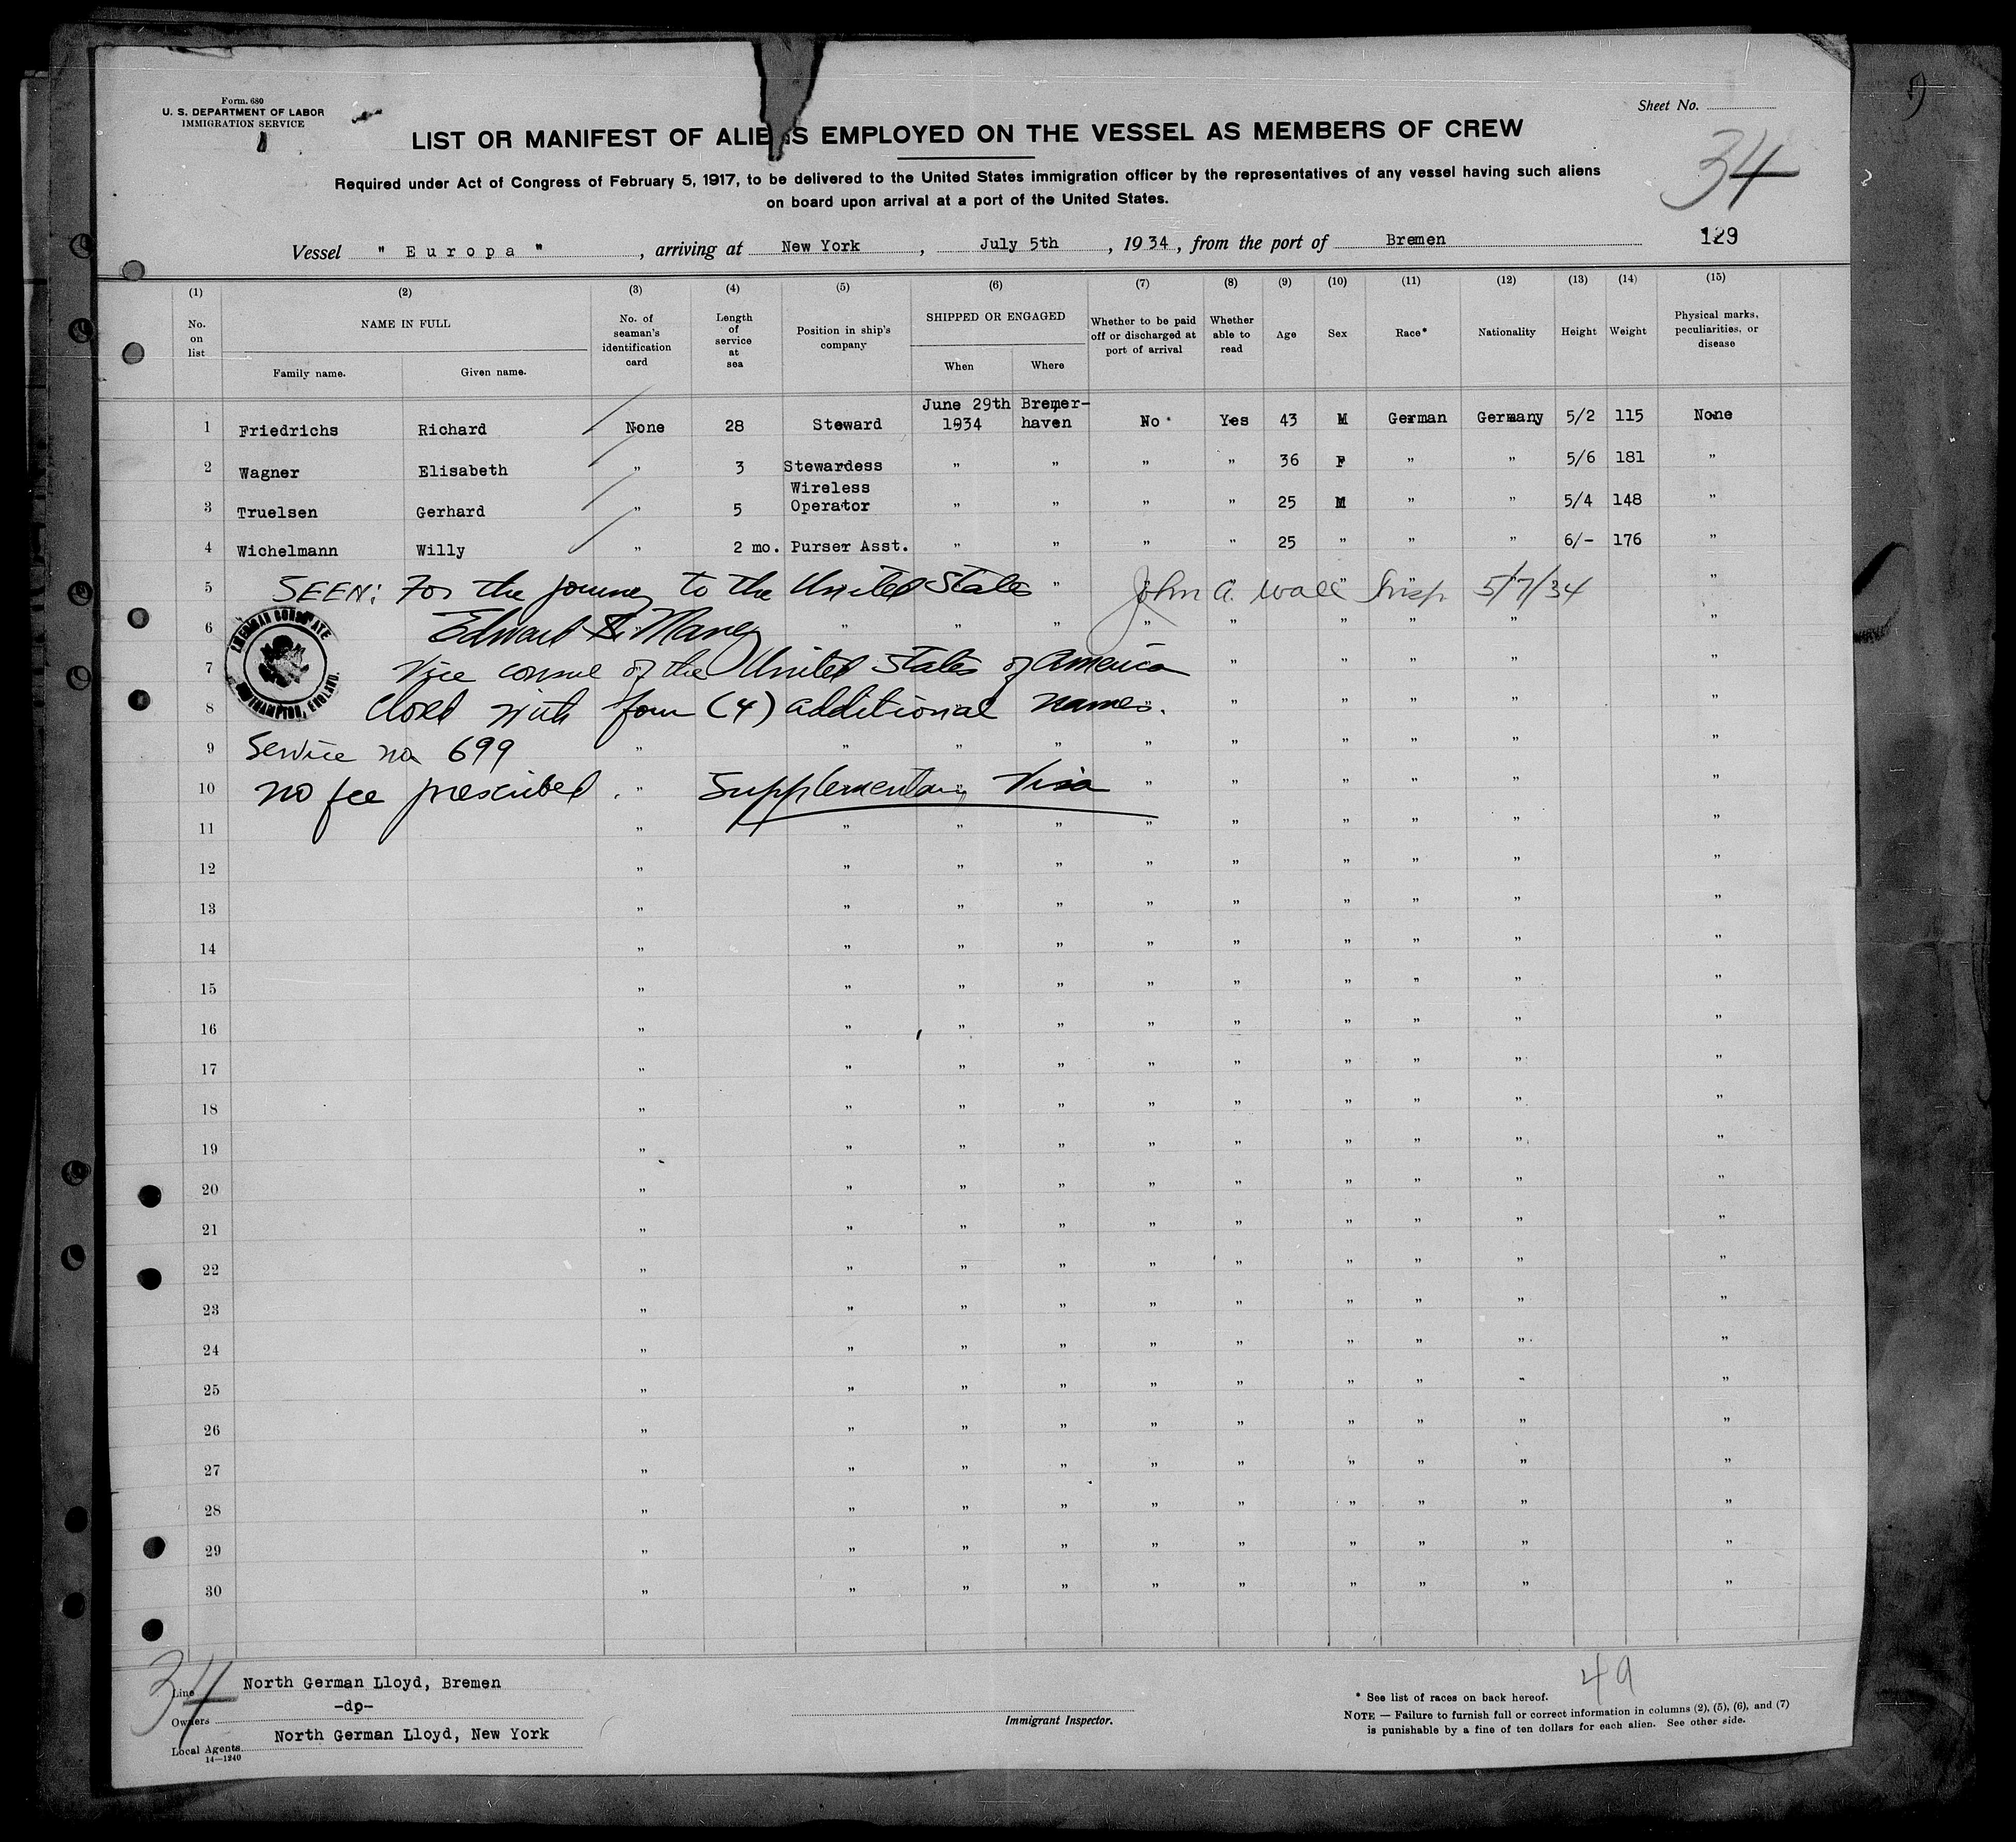 Form. 680
U. S. DEPARTMENT OF LABOR
IMMIGRATION SERVICE
Sheet No.
34
LIST OR MANIFEST OF ALIENS EMPLOYED ON THE VESSEL AS MEMBERS OF CREW
Required under Act of Congress of February 5, 1917, to be delivered to the United States immigration officer by the representatives of any vessel having such aliens
on board upon arrival at a port of the United States.
Vessel " Europa " , arriving at New York , July 5th , 1934 , from the port of Bremen 129
(1) (2) (3) (4) (5) (6) (7) (8) (9) (10) (11) (12) (13) (14) (15)
No. on list NAME IN FULL Family name. Given name. No. of seaman's identification card Length of service at sea Position in ship's company SHIPPED OR ENGAGED When Where Whether to be paid off or discharged at port of arrival Whether able to read Age Sex Race* Nationality Height Weight Physical marks, peculiarities, or disease
1 Friedrichs Richard None 28 Steward June 29th 1934 Bremer-haven No Yes 43 M German Germany 5/2 115 None
2 Wagner Elisabeth " 3 Stewardess " " " " 36 F " " 5/6 181 "
3 Truelsen Gerhard " 5 Wireless Operator " " " " 25 M " " 5/4 148 "
4 Wichelmann Willy " 2 mo. Purser Asst. " " " " 25 " " " 6/- 176 "
5 SEEN: For the journey to the United States " John A. Wall Insp. 5/7/34 "
6 Edward S. Maney " " " " " " " " "
7 Vice consul of the United States of America " " " " "
8 Closed with four (4) additional names. " " " " "
AMERICAN CONSULATE
SOUTHAMPTON, ENGLAND.
9 Service no 699 " " " " " " " " " "
10 no fee prescribed. " Supplementary Visa " " " " " "
11 " " " " " " " " " "
12 " " " " " " " " " "
13 " " " " " " " " " "
14 " " " " " " " " " "
15 " " " " " " " " " "
16 " " " " " " " " " "
17 " " " " " " " " " "
18 " " " " " " " " " "
19 " " " " " " " " " "
20 " " " " " " " " " "
21 " " " " " " " " " "
22 " " " " " " " " " "
23 " " " " " " " " " "
24 " " " " " " " " " "
25 " " " " " " " " " "
26 " " " " " " " " " "
27 " " " " " " " " " "
28 " " " " " " " " " "
29 " " " " " " " " " "
30 " " " " " " " " " "
34
Line North German Lloyd, Bremen
Owners -dp-
Local Agents North German Lloyd, New York
14—1240
Immigrant Inspector.
49
* See list of races on back hereof.
NOTE — Failure to furnish full or correct information in columns (2), (5), (6), and (7)
is punishable by a fine of ten dollars for each alien. See other side.